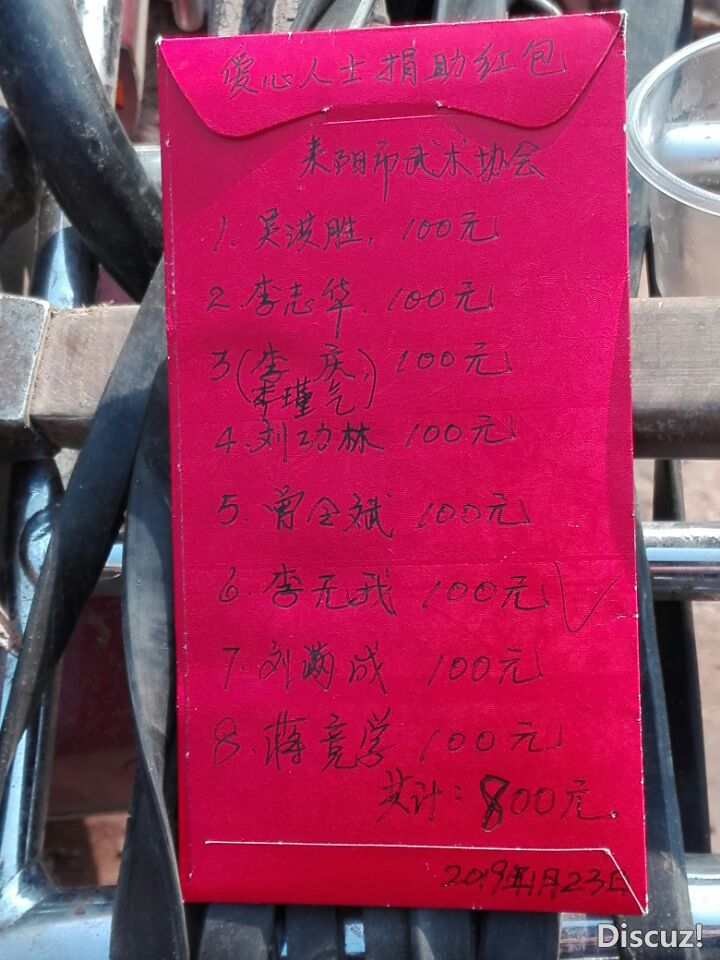 爱心人士捐助红包
耒阳市武术协会
1. 吴洪胜, 100元
2. 李志华. 100元
3(李 庆, 100元
李瑾气)
4. 刘功林 100元
5. 曾全斌 100元
6. 李无我 100元
7. 刘满成 100元
8. 蒋竞学 100元
共计：800元。
2019年1月23日
Discuz!